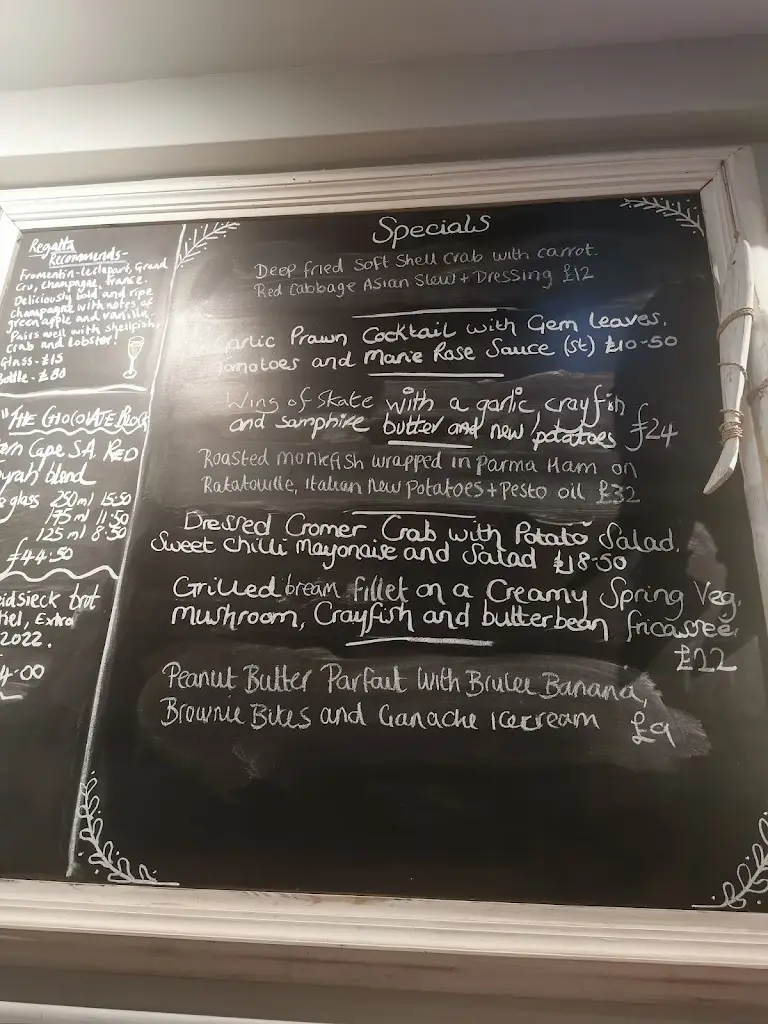 Regatta
Recommends-
Fromentin-Leclapart, Grand
Cru, champagne, France.
Deliciously bold and ripe
champagne with notes of
green apple and vanilla.
Pairs well with shellfish,
crab and lobster!
Glass - £15
Bottle - £80
"THE CHOCOLATE BLOCK
ern Cape S.A. RED
yrah blend
e glass 250ml 15:50
175ml 11:50
125ml 8:50
£44:50
eidsieck brot
tiel, Extra
2022.
4.00
Specials
Deep fried Soft Shell Crab with carrot.
Red Cabbage Asian Slaw + Dressing £12
Garlic Prawn Cocktail with Gem leaves,
omatoes and Marie Rose Sauce (St) £10-50
Wing of Skate with a garlic, crayfish
and samphire butter and new potatoes £24
Roasted monkfish wrapped in Parma Ham on
Ratatouille, Italian New Potatoes + Pesto oil £32
Dressed Cromer Crab with Potato Salad.
Sweet Chilli Mayonaise and Salad £18-50
Grilled bream fillet on a Creamy Spring Veg,
Mushroom, Crayfish and butterbean fricassée.
£22
Peanut Butter Parfait With Brulee Banana,
Brownie Bites and Ganache Icecream £9